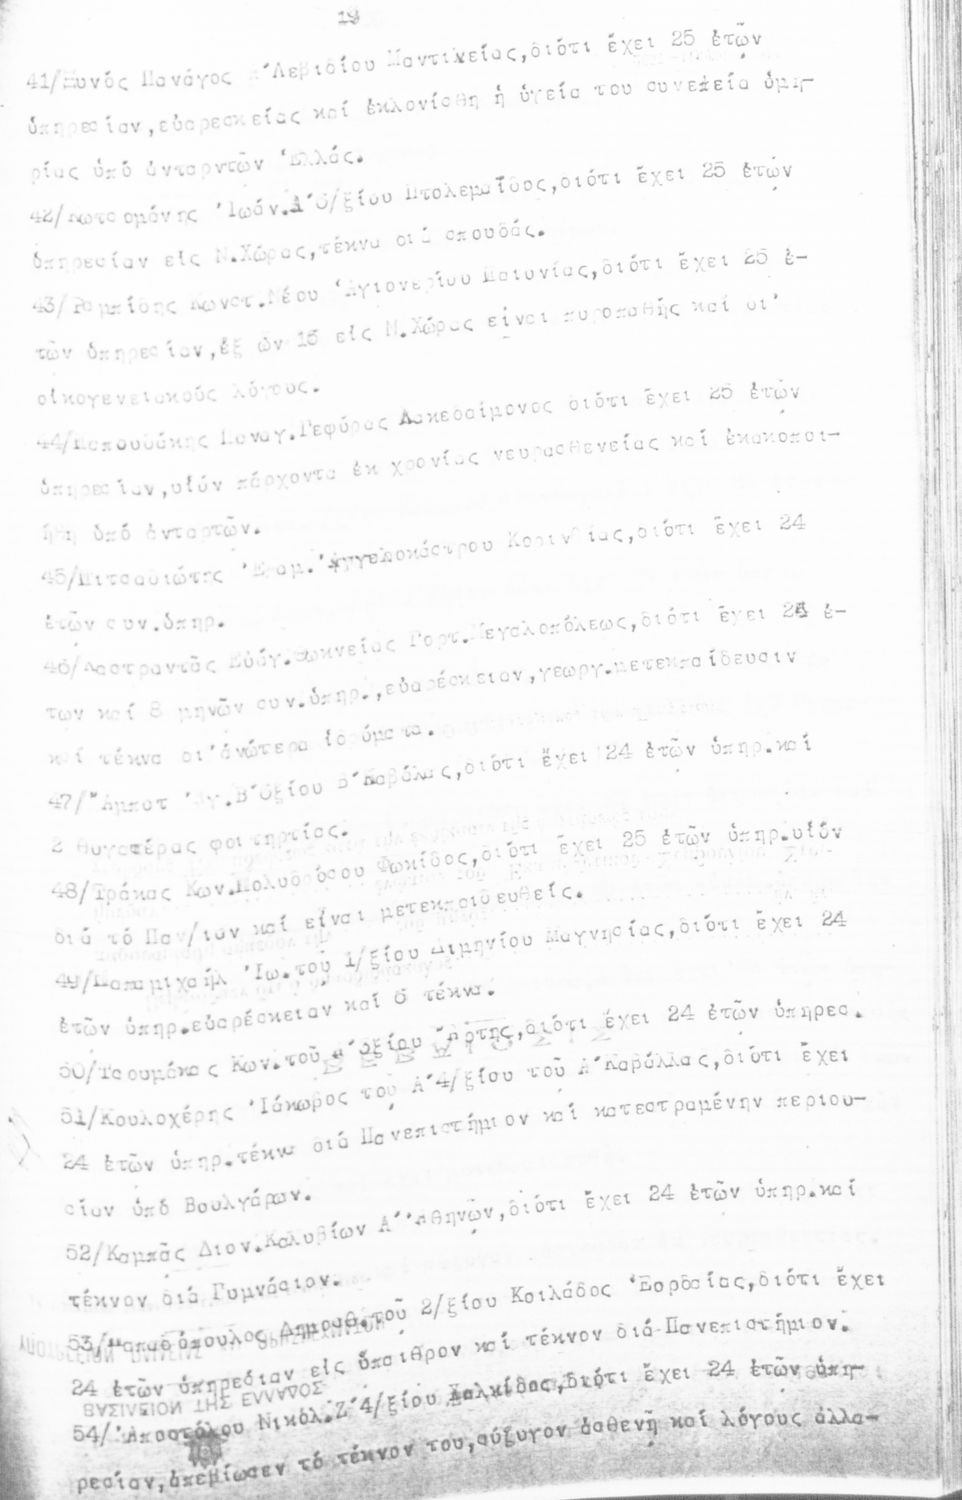 19
41/Ξυνός Πανάγος Α΄Λεβιδίου Μαντινείας,διότι ἔχει 25 ἐτῶν
ὑπηρεσίαν,εὐαρεσκείας καί ἐκλονίσθη ἡ ὑγεία του συνεπεία ὁμη-
ρίας ὑπό ἀνταρτῶν Ἑλλάς.
42/Κωτσομάνης Ἰωάν.Α΄6/ξίου Πτολεμαΐδος,διότι ἔχει 25 ἐτῶν
ὑπηρεσίαν εἰς Ν.Χώρας,τέκνα διά σπουδάς.
43/Ραμπίδης Κωνστ.Νέου Ἁγιονερίου Παιονίας,διότι ἔχει 25 ἐ-
τῶν ὑπηρεσίαν,ἐξ ὧν 15 εἰς Ν.Χώρας εἶναι πυροπαθής καί δι'
οἰκογενειακούς λόγους.
44/Παπουδάκης Παναγ.Γεφύρας Λακεδαίμονος διότι ἔχει 25 ἐτῶν
ὑπηρεσίαν,υἱόν πάσχοντα ἐκ χρονίας νευρασθενείας καί ἐκακοποι-
ήθη ὑπό ἀνταρτῶν.
45/Πιτσαδιώτης Ἐπαμ.Ἀγγελοκάστρου Κορινθίας,διότι ἔχει 24
ἐτῶν συν.ὑπηρ.
46/Λαστραντᾶς Εὐάγ.Θωκνείας Γορτ.Μεγαλοπόλεως,διότι ἔχει 24 ἐ-
των καί 8 μηνῶν συν.ὑπηρ.,εὐαρέσκειαν,γεωργ.μετεκπαίδευσιν
καί τέκνα δι'ἀνώτερα ἱδρύματα.
47/Ἀμποτ Ἀγ.Β΄6ξίου Β΄Καβάλας,διότι ἔχει 24 ἐτῶν ὑπηρ.καί
2 θυγατέρας φοιτητρίας.
48/Τράκας Κων.Πολυδρόσου Φωκίδος,διότι ἔχει 25 ἐτῶν ὑπηρ.υἱόν
διά τό Παν/ιον καί εἶναι μετεκπαιδευθείς.
49/Παπαμιχαήλ Ἰω.τοῦ 1/ξίου Διμηνίου Μαγνησίας,διότι ἔχει 24
ἐτῶν ὑπηρ.εὐαρέσκειαν καί 6 τέκνα.
50/Τσουμάκας Κων.τοῦ Α΄6ξίου Ἄρτης,διότι ἔχει 24 ἐτῶν ὑπηρεσ.
51/Κουλοχέρης Ἰάκωβος τοῦ Α΄4/ξίου τοῦ Α΄Καβάλλας,διότι ἔχει
24 ἐτῶν ὑπηρ.τέκνα διά Πανεπιστήμιον καί κατεστραμένην περιου-
σίαν ὑπό Βουλγάρων.
52/Καμπᾶς Διον.Καλυβίων Α΄Ἀθηνῶν,διότι ἔχει 24 ἐτῶν ὑπηρ.καί
τέκνον διά Γυμνάσιον.
53/Παπαδόπουλος Δημοσθ.τοῦ 2/ξίου Κοιλάδος Ἐορδαίας,διότι ἔχει
24 ἐτῶν ὑπηρεσίαν εἰς ὕπαιθρον καί τέκνον διά Πανεπιστήμιον.
54/Ἀποστόλου Νικόλ.Ζ΄4/ξίου Χαλκίδος,διότι ἔχει 24 ἐτῶν ὑπη-
ρεσίαν,ἀπεβίωσεν τό τέκνον του,σύζυγον ἀσθενῆ καί λόγους ἀλλα-